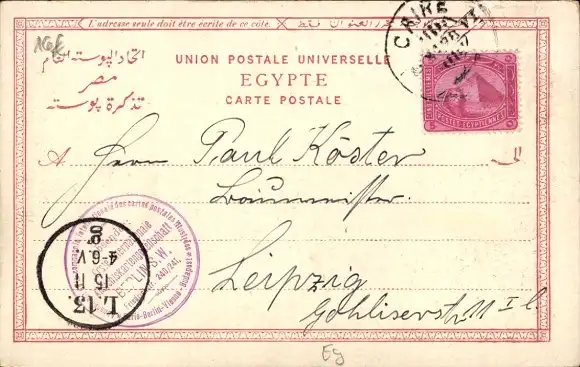 L'adresse seule doit être écrite de ce côté.
16 E
CAIRE
اتحاد البوسته العام
مصر
تذكرة بوسته
UNION POSTALE UNIVERSELLE
EGYPTE
CARTE POSTALE
POSTES EGYPTIENNES
A
الى
Herrn Paul Köster
Baumeister.
Leipzig
Gohliserstr. 11 I l.
BERLIN S.W.
Berlin-Vienna-Budapest
L. 13.
15 11
4-6.V
Eg